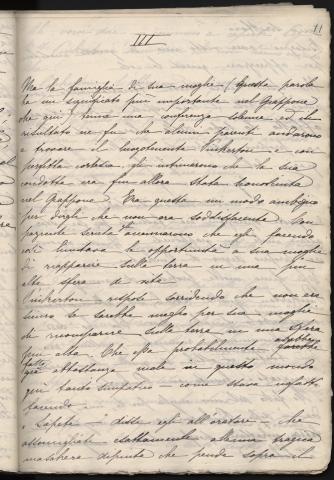 11
III
Ma la famiglia di sua moglie (Questa parola
ha un significato più importante nel Giappone
che qui) tenne una conferenza solenne ed il
risultato ne fu che alcuni parenti andarono
a trovare il luogotenente Pinkerton e con
perfetta cortesia gli intimarono che la sua
condotta era fin allora stata sconosciuta
nel Giappone. Era questo un modo ambiguo
per dirgli che non era soddisfacente. Con
parvente serietà che egli facendo
così limitava le opportunità a sua moglie
di riapparire sulla terra in una più
alta sfera di vita.
Pinkerton rispose sorridendo che non era
sicuro se sarebbe meglio per sua moglie
di ricomparire sulla terra in una sfera
più alta. Che essa probabilmente avrebbe
fatto già abbastanza male in questo mondo
qui tanto simpatico — come stava infatti
facendo.
"Sapete — " disse egli all'oratore — che
assomigliate esattamente alcuna tragica
maschera dipinta che pende sopra il